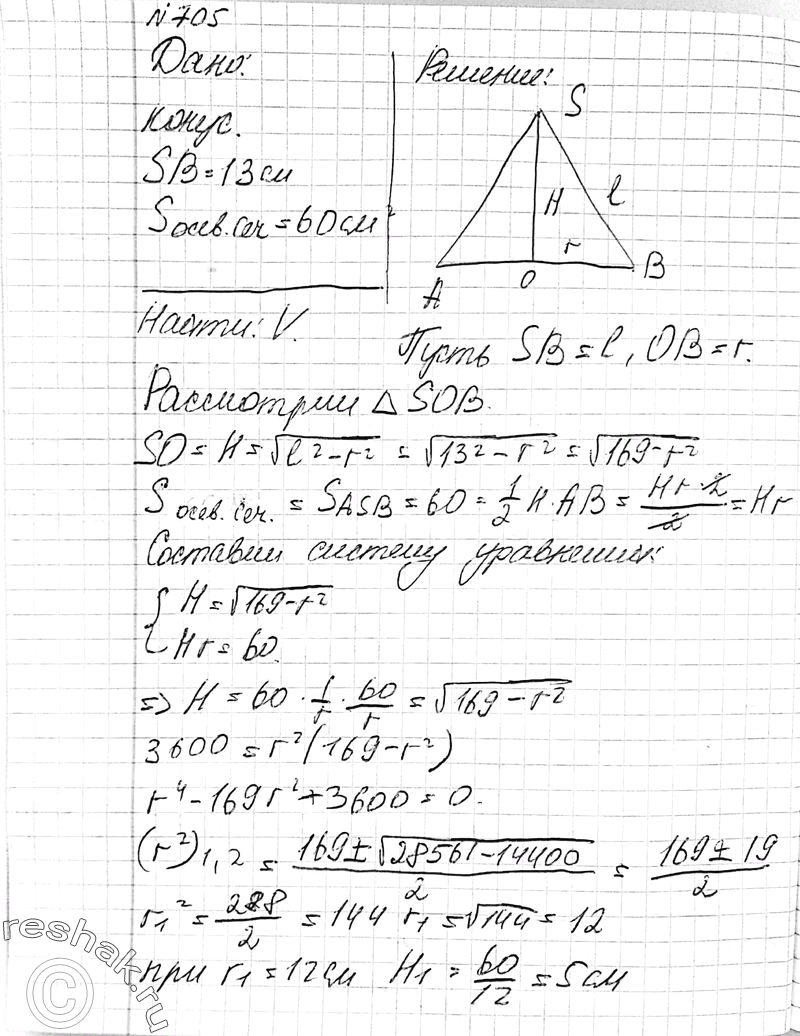 №705
Дано:
Решение:
конус.
SB = 13 см
Sосев.сеч = 60 см²
S
H
l
r
A
O
B
Найти: V.
Пусть SB = l, OB = r.
Рассмотрим △ SOB.
SO = H = √(l² - r²) = √(13² - r²) = √(169 - r²)
Sосев.сеч. = SASB = 60 = 1/2 H·AB = Hr·2/2 = Hr
Составим систему уравнений:
{ H = √(169 - r²)
{ Hr = 60.
=> H = 60 · 1/r · 60/r = √(169 - r²)
3600 = r²(169 - r²)
r⁴ - 169r² + 3600 = 0.
(r²)1,2 = (169 ± √(28561 - 14400))/2 = (169 ± 19)/2
r₁² = 288/2 = 144 r₁ = √144 = 12
при r₁ = 12 см H₁ = 60/12 = 5 см
©reshak.ru